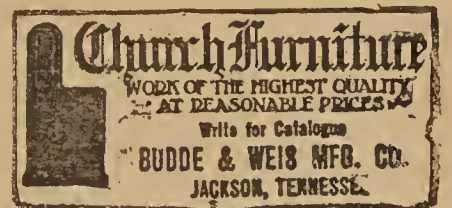 Church Furniture
WORK OF THE HIGHEST QUALITY
AT REASONABLE PRICES
Write for Catalogue
BUDDE & WEIS MFG. CO.
JACKSON, TENNESSEE